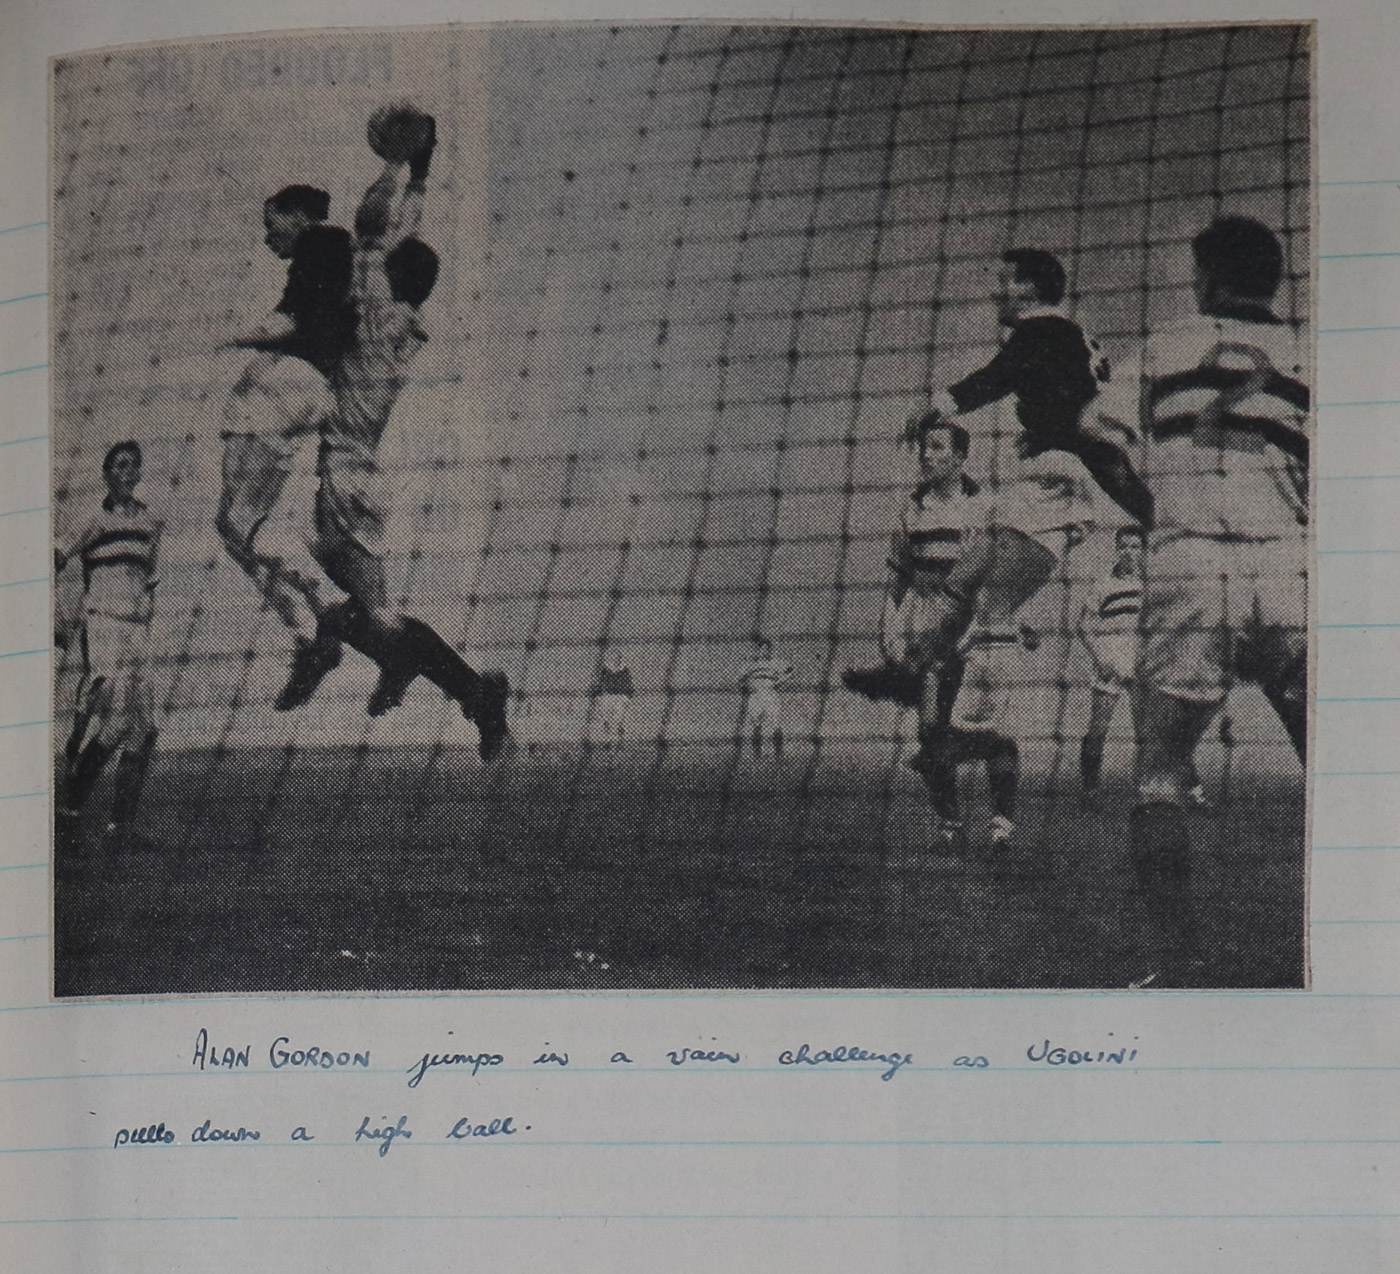 ALAN GORDON jumps in a vain challenge as UGOLINI
pulls down a high ball.